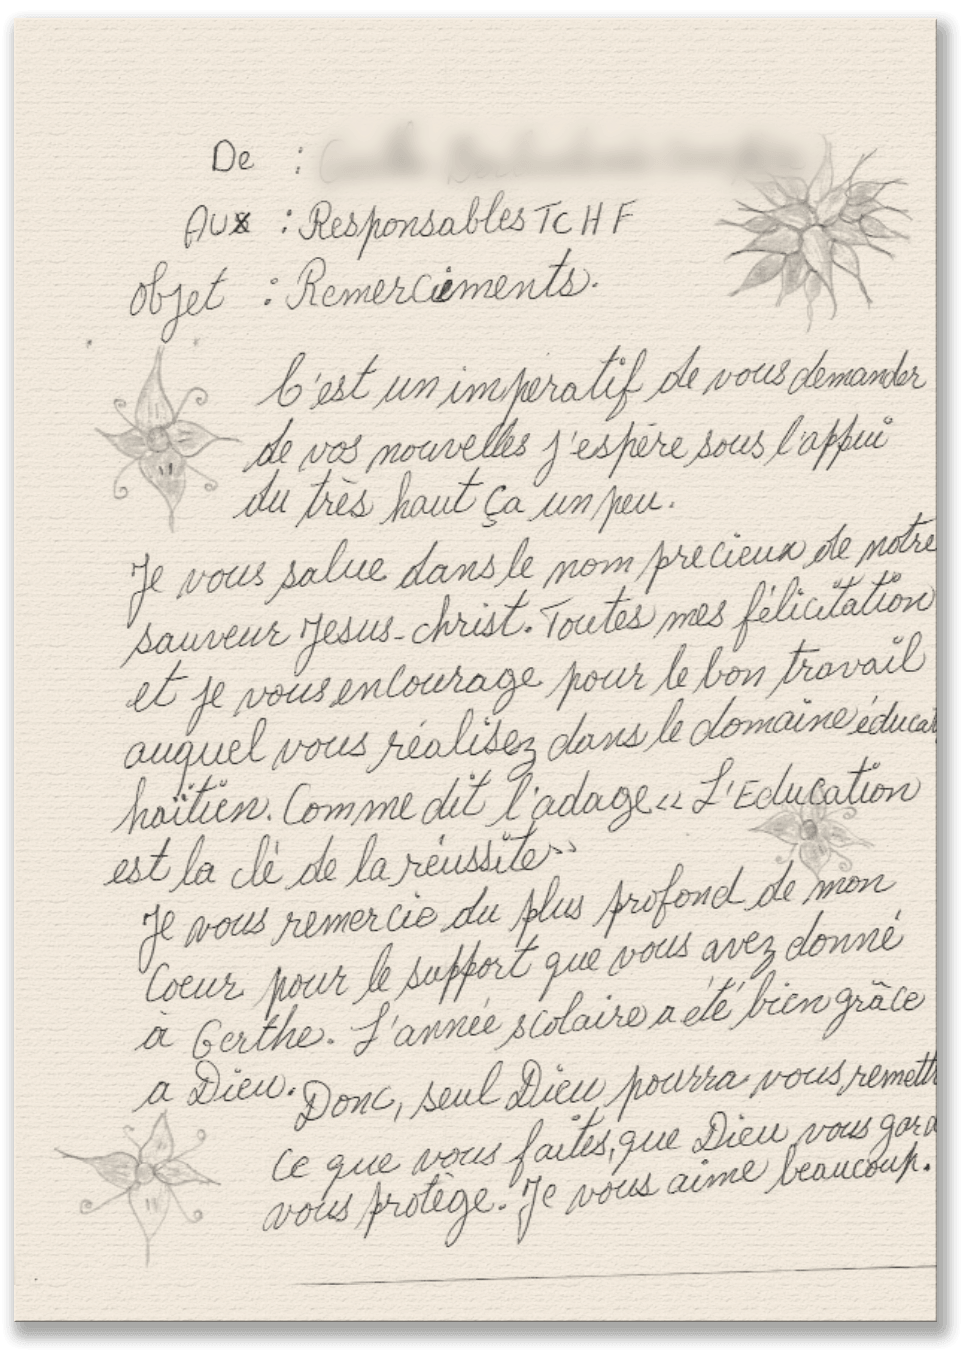 De :
Aux : Responsables TCHF
Objet : Remerciements.
C'est un impératif de vous demander
de vos nouvelles j'espère sous l'appui
du très haut ça un peu.
Je vous salue dans le nom precieux de notre
sauveur Jesus-christ. Toutes mes félicitation
et je vous encourage pour le bon travail
auquel vous réalisez dans le domaine éducat
haïtien. Comme dit l'adage << L'Education
est la clé de la réussite >>
Je vous remercie du plus profond de mon
Coeur pour le support que vous avez donné
à Gerthe. L'année scolaire a été bien grâce
a Dieu. Donc, seul Dieu pourra vous remett
ce que vous faites, que Dieu vous gard
vous protège. Je vous aime beaucoup.